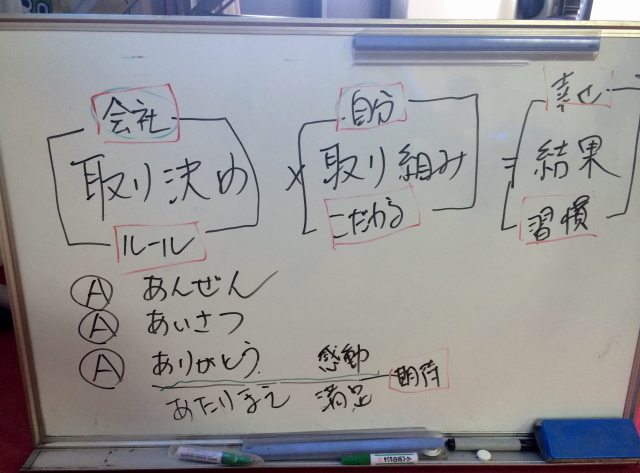 会社 自分 幸せ
取り決め × 取り組み = 結果
ルール こだわる 習慣
Ⓐ あんぜん
Ⓐ あいさつ
Ⓐ ありがとう 感動
期待
あたりまえ 満足